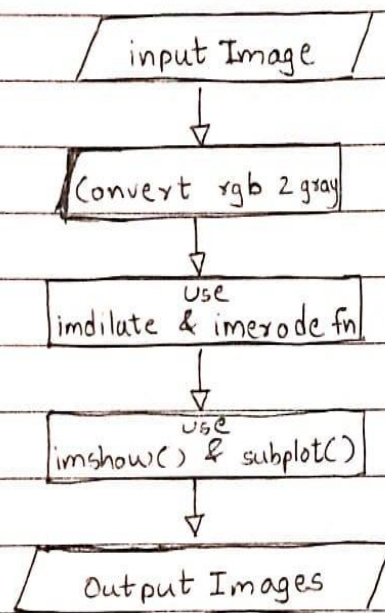 input Image
Convert rgb 2 gray
use
imdilate & imerode fn
use
imshow() & subplot()
Output Images